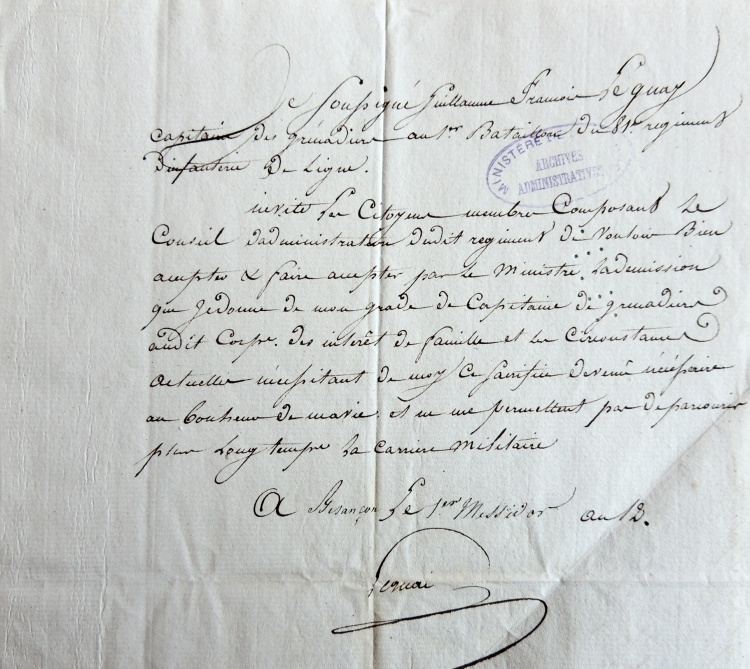 Je Soussigné Guillaume Francois Lequay
capitaine des grenadiers au 1er Bataillon du 81e regiment
d'infanterie de Ligne.
MINISTÈRE
ARCHIVES
ADMINISTRATIVES
invite Les Citoyens membres Composant Le
Conseil dadministration dudit regiment de Vouloir Bien
accepter & faire accepter par le Ministre Lademission
que Jedonne de mon grade de Capitaine de grenadiers
audit Corps. des interêt de famille et les Circonstances
actuelles nécessitant de moy Ce sacrifice devenu nécessaire
au bonheur de mavie, et ne me permettent pas deparcourir
plus Longtemps La carriere Militaire
A Besançon Le 1er Messidor an 12.
Lequai